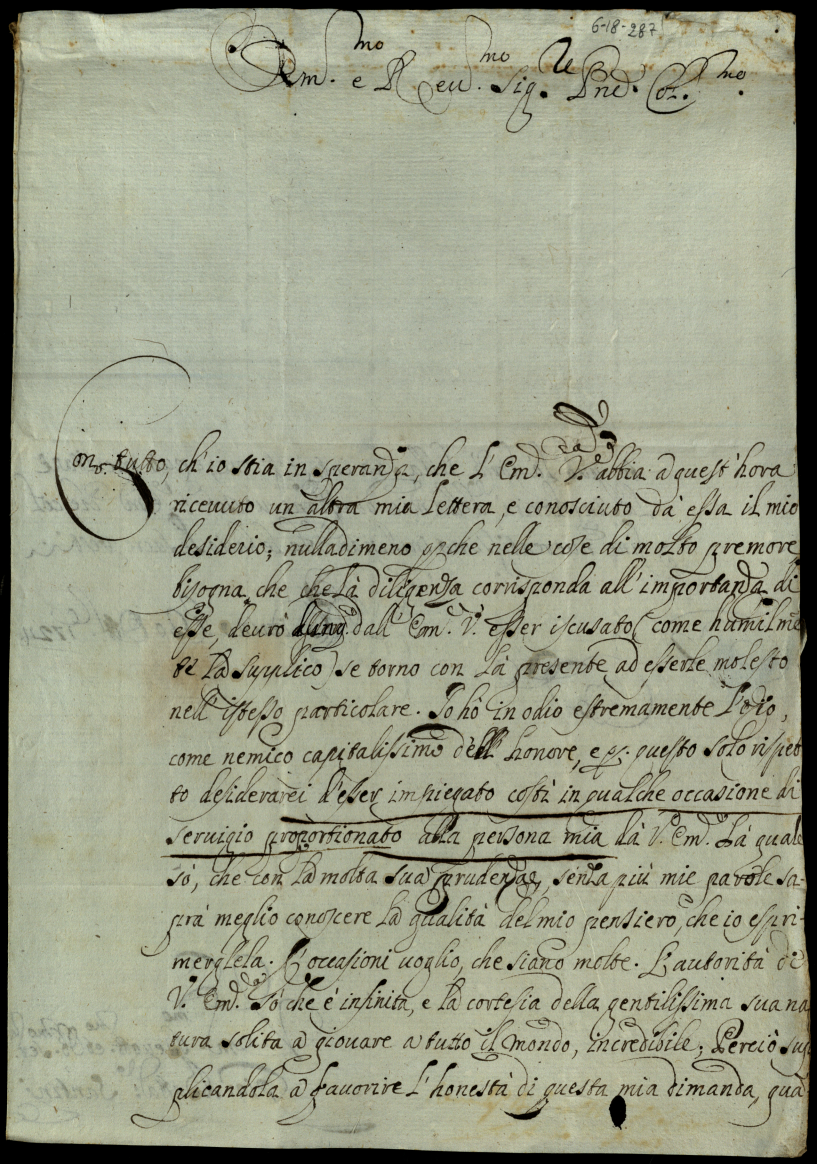 6-18-287
Em.mo e Reu.mo Sig.re Pne. Col.mo
Con tutto, ch'io stia in speranza, che l'Em. V. abbia a quest'hora
riceuuto un altra mia lettera, e conosciuto da essa il mio
desiderio; nulladimeno perche nelle cose di molto premore
bisogna, che che la diligenza corrisponda all'importanza di
esse, deurò dall'Em. V. esser iscusato (come humilme
te la supplico) se torno con la presente ad esserle molesto
nell'istesso particolare. Io hò in odio estremamente l'otio,
come nemico capitalissimo dell'honore, e p. questo solo rispet
to desiderarei d'esser impiegato costì in qualche occasione di
seruigio proportionato alla persona mia da V. Em. La quale
sò, che con la molta sua prudenza, senza più mie parole sa-
prà meglio conoscere la qualità del mio pensiero, che io espri-
merglela. L'occasioni uoglio, che siano molte. L'autorità di
V. Em. sò che è infinita, e la cortesia della gentilissima sua na
tura solita a giouare a tutto il mondo, incredibile; Perciò sup
plicandola a fauorire l'honestà di questa mia dimanda, qua